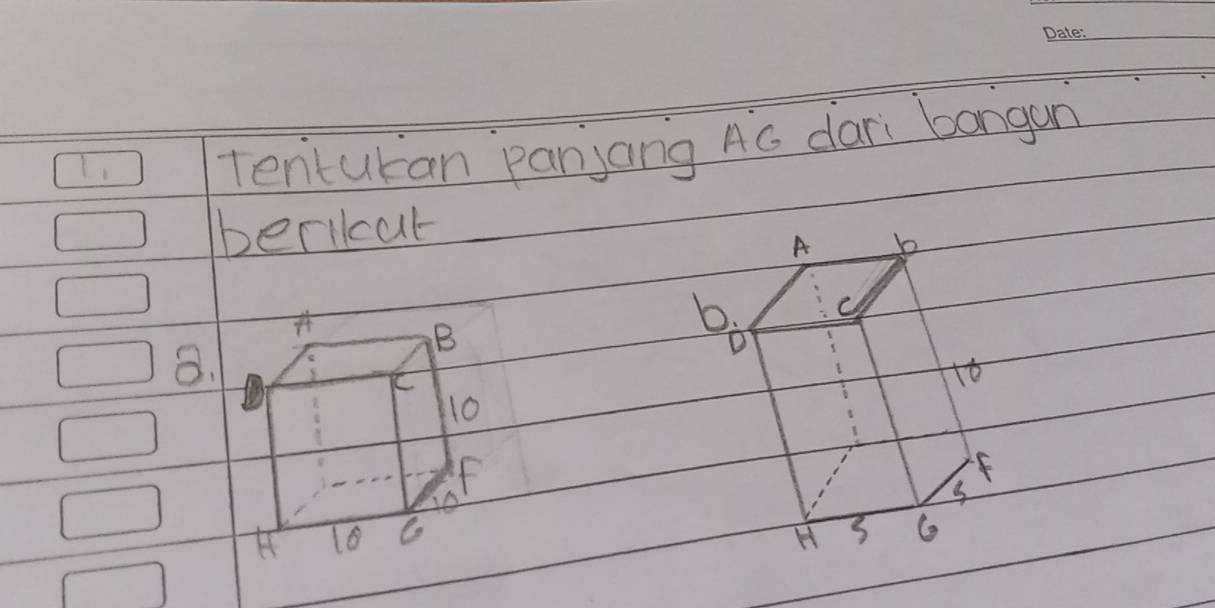 Date:
1. Tentukan panjang AG dari bangun
berikut
a.
A
B
D
C
10
F
10
H 10 G
b.
A
b
D
C
10
F
5
H 5 G